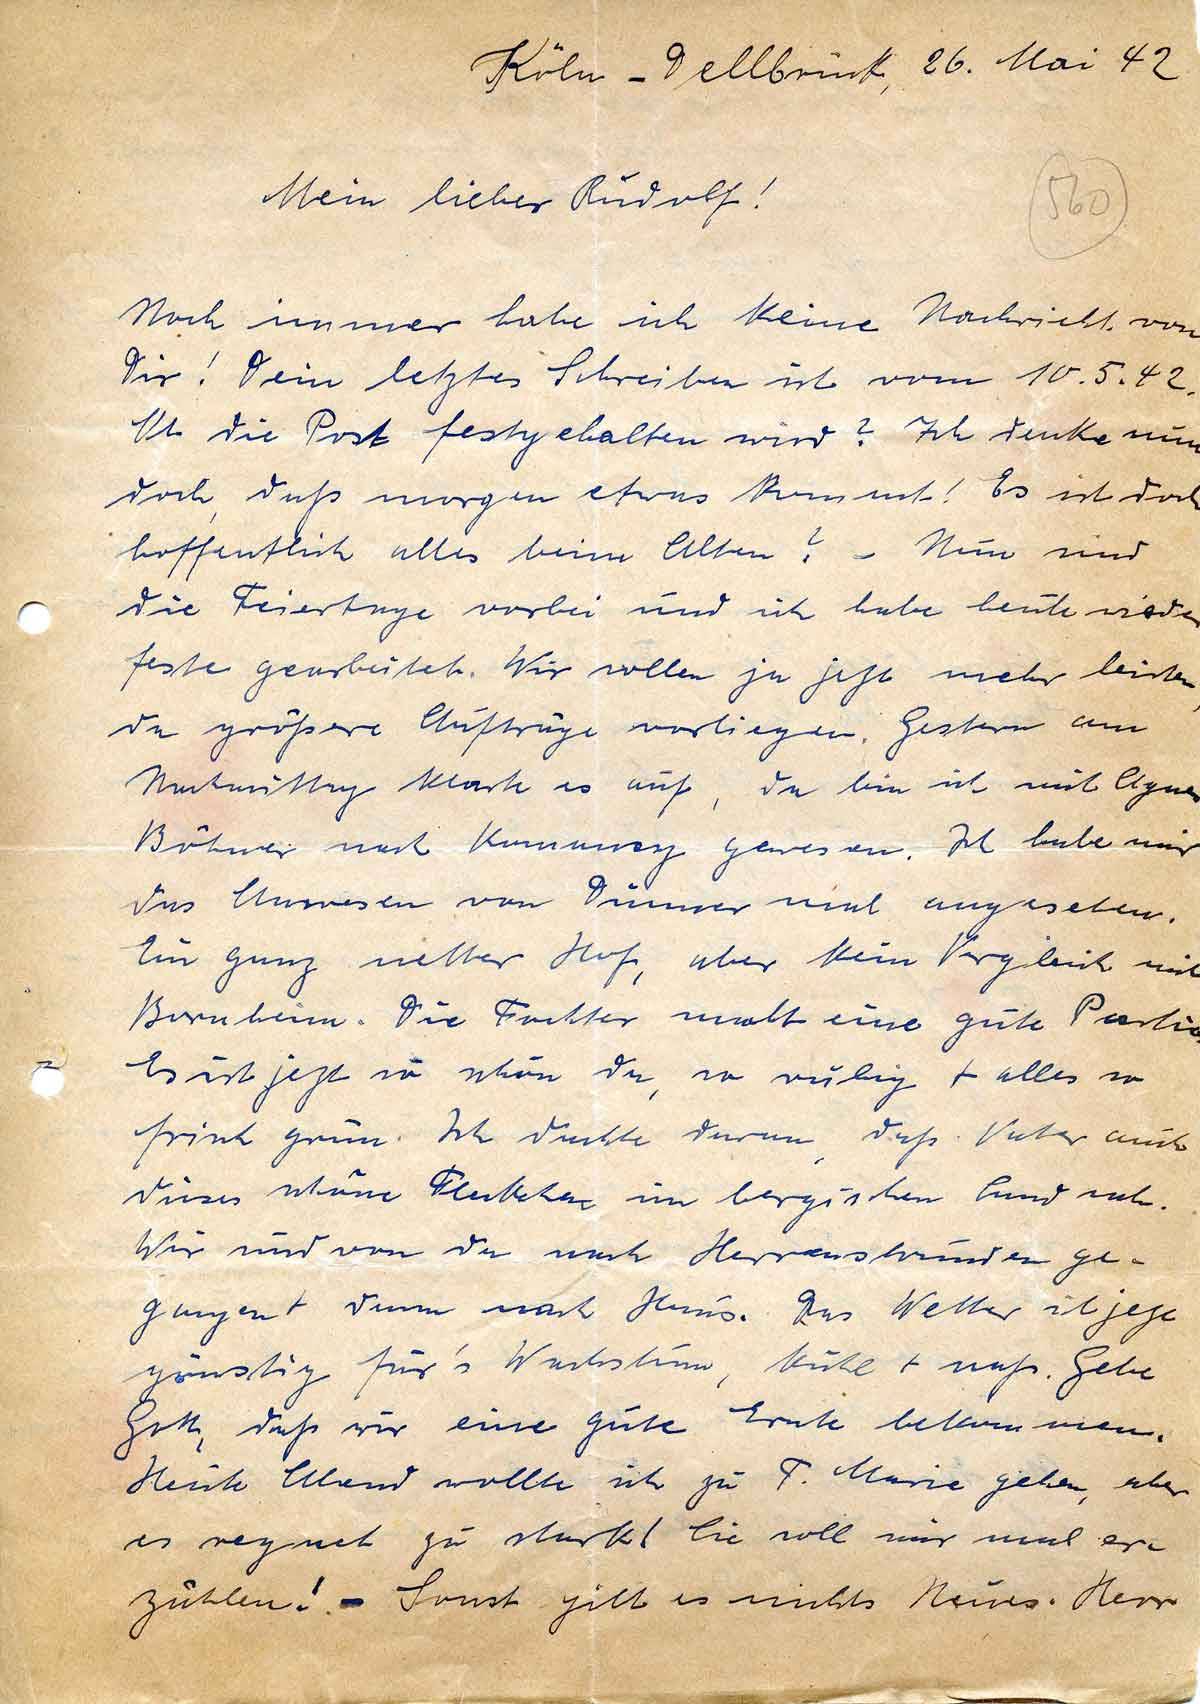 Köln-Dellbrück, 26. Mai 42
560
Mein lieber Rudolf!
Noch immer habe ich keine Nachricht von
Dir! Dein letztes Schreiben ist vom 10.5.42.
Ob die Post festgehalten wird? Ich denke nun
doch, daß morgen etwas kommt! Es ist doch
hoffentlich alles beim Alten? – Nun sind
die Feiertage vorbei und ich habe heute wieder
feste gearbeitet. Wir sollen ja jetzt mehr leisten,
da größere Aufträge vorliegen. Gestern am
Nachmittag klarte es auf, da bin ich mit Agnes
Böhner nach gewesen. Ich habe mir
das Anwesen von Dünner mal angesehen.
Ein ganz netter Hof, aber kein Vergleich mit
Bornheim. Die Tochter macht eine gute Partie.
Es ist jetzt so schön da, so ruhig + alles so
frisch grün. Ich dachte daran, daß Vater auch
dieses schöne Fleckchen im bergischen Land sah.
Wir sind von da nach Herrenstrunden ge-
gangen + dann nach Haus. Das Wetter ist jetzt
günstig für's Wachstum, kühl + naß. Gebe
Gott, daß wir eine gute Ernte bekommen.
Heute Abend wollte ich zu T. Marie gehen, aber
es regnet zu stark! Sie soll mir mal er-
zählen! – Sonst gibt es nichts Neues. Herr